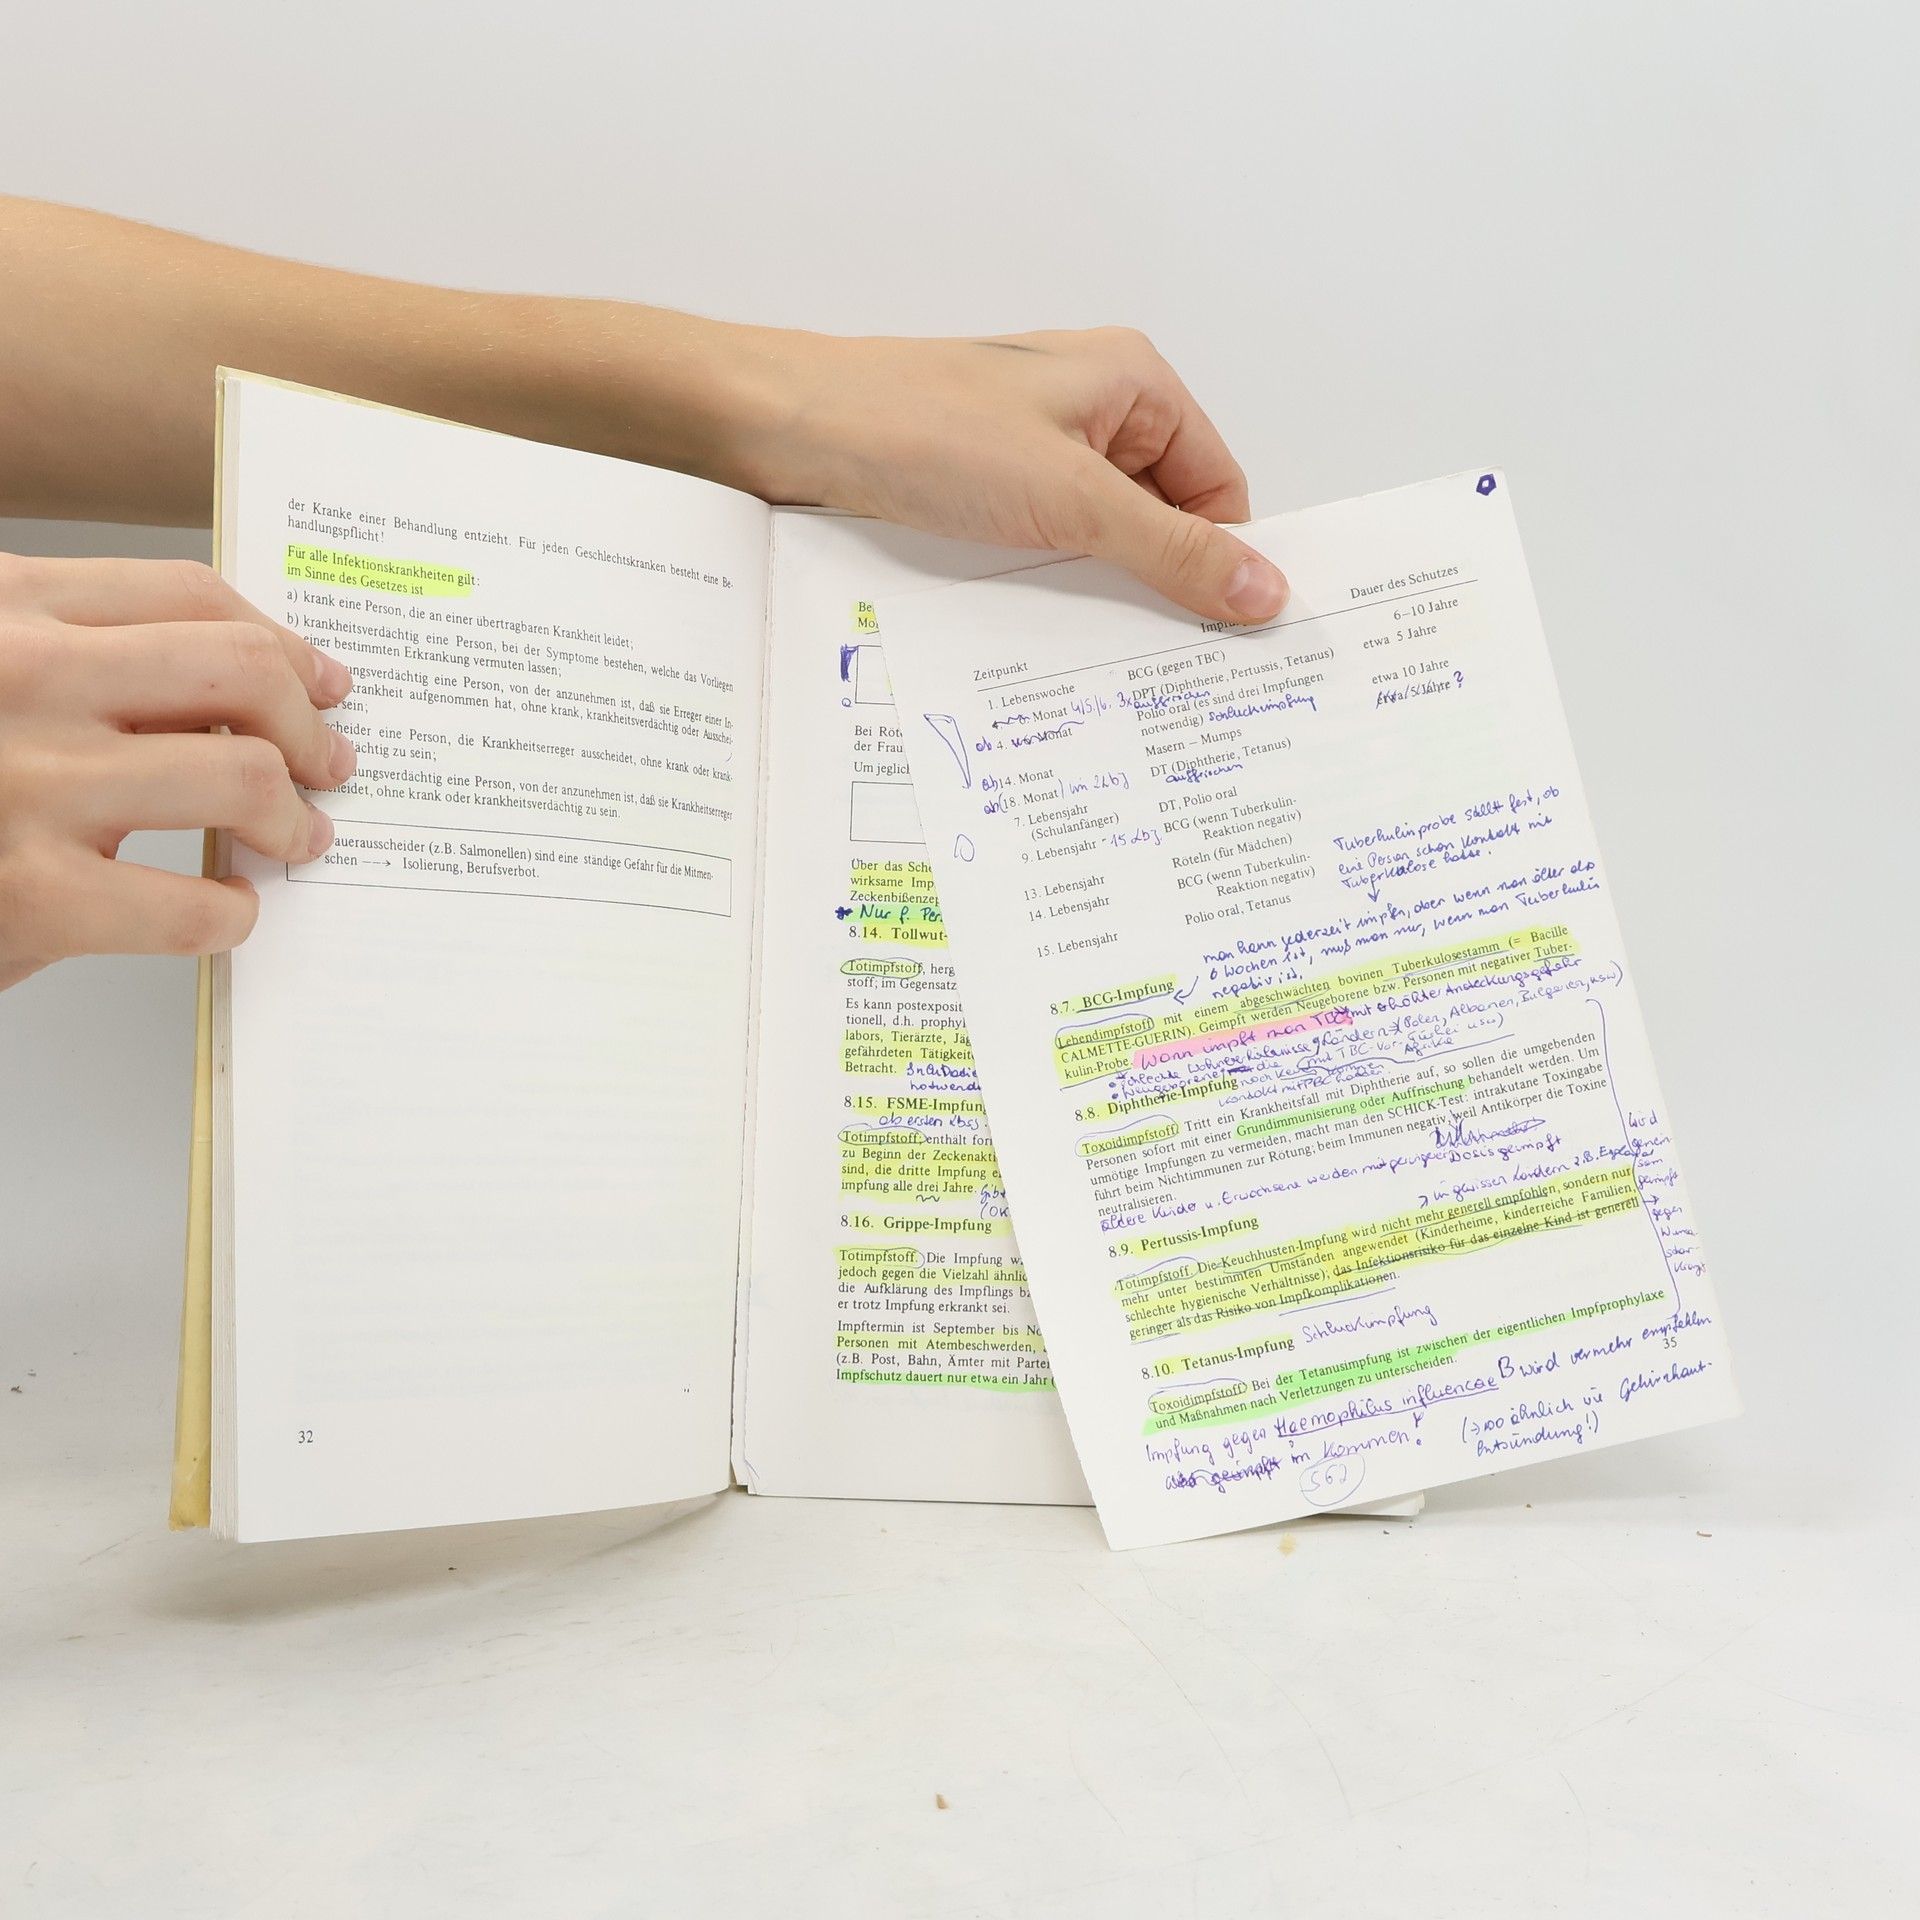 der Kranke einer Behandlung entzieht. Für jeden Geschlechtskranken besteht eine Be-
handlungspflicht!
Für alle Infektionskrankheiten gilt:
im Sinne des Gesetzes ist
a) krank eine Person, die an einer übertragbaren Krankheit leidet;
b) krankheitsverdächtig eine Person, bei der Symptome bestehen, welche das Vorliegen
einer bestimmten Erkrankung vermuten lassen;
ungsverdächtig eine Person, von der anzunehmen ist, daß sie Erreger einer In-
krankheit aufgenommen hat, ohne krank, krankheitsverdächtig oder Ausschei-
sein;
scheider eine Person, die Krankheitserreger ausscheidet, ohne krank oder krank-
dächtig zu sein;
dungsverdächtig eine Person, von der anzunehmen ist, daß sie Krankheitserreger
ausscheidet, ohne krank oder krankheitsverdächtig zu sein.
auerausscheider (z.B. Salmonellen) sind eine ständige Gefahr für die Mitmen-
schen ---> Isolierung, Berufsverbot.
32
Be
Mo
Bei Röt
der Frau
Um jeglic
Über das Sche
wirksame Imp
Zeckenbißenzep
Nur f. Per
8.14. Tollwut-
Totimpfstoff, herg
stoff; im Gegensatz
Es kann postexposit
tionell, d.h. prophyl
labors, Tierärzte, Jäg
gefährdeten Tätigkeite
Betracht.
notwend
8.15. FSME-Impfung
ab ersten Lbsj.
Totimpfstoff; enthält for
zu Beginn der Zeckenakti
sind, die dritte Impfung e
impfung alle drei Jahre.
8.16. Grippe-Impfung
Totimpfstoff. Die Impfung w
jedoch gegen die Vielzahl ähnlic
die Aufklärung des Impflings bz
er trotz Impfung erkrankt sei.
Impftermin ist September bis No
Personen mit Atembeschwerden,
(z.B. Post, Bahn, Ämter mit Parte
Impfschutz dauert nur etwa ein Jahr (
Zeitpunkt Impfu Dauer des Schutzes
1. Lebenswoche BCG (gegen TBC) 6–10 Jahre
Monat 4/5./6. 3x DPT (Diphtherie, Pertussis, Tetanus) etwa 5 Jahre
auffrischen
ab 4. Monat Polio oral (es sind drei Impfungen etwa 10 Jahre
notwendig) Schluckimpfung etwa/5/Jahre ?
ab 14. Monat Masern – Mumps
ab (18. Monat) im 2 Lbj DT (Diphtherie, Tetanus)
auffrischen
7. Lebensjahr DT, Polio oral
(Schulanfänger)
9. Lebensjahr - 15 Lbj BCG (wenn Tuberkulin-
Reaktion negativ)
13. Lebensjahr Röteln (für Mädchen)
14. Lebensjahr BCG (wenn Tuberkulin-
Reaktion negativ)
15. Lebensjahr Polio oral, Tetanus
Tuberkulinprobe stellt fest, ob
eine Person schon Kontakt mit
Tuberkulose hatte.
man kann jederzeit impfen, aber wenn man älter als
6 Wochen ist, muß man nur, wenn man Tuberkulin
negativ ist.
8.7. BCG-Impfung
Lebendimpfstoff mit einem abgeschwächten bovinen Tuberkulosestamm (= Bacille
CALMETTE-GUERIN). Geimpft werden Neugeborene bzw. Personen mit negativer Tuber-
kulin-Probe. Wann impft man TBC mit erhöhter Ansteckungsgefahr
schlechte Wohnverhältnisse, Ländern (Polen, Albanien, Bulgarien, usw)
Neugeborene, die noch keinen
Kontakt mit TBC haben.
8.8. Diphtherie-Impfung
Toxoidimpfstoff. Tritt ein Krankheitsfall mit Diphtherie auf, so sollen die umgebenden
Personen sofort mit einer Grundimmunisierung oder Auffrischung behandelt werden. Um
unnötige Impfungen zu vermeiden, macht man den SCHICK-Test: intrakutane Toxingabe
führt beim Nichtimmunen zur Rötung; beim Immunen negativ, weil Antikörper die Toxine
neutralisieren.
ältere Kinder u. Erwachsene werden mit geringerer Dosis geimpft
→ in gewissen Ländern z.B. England
8.9. Pertussis-Impfung
Totimpfstoff. Die Keuchhusten-Impfung wird nicht mehr generell empfohlen, sondern nur
mehr unter bestimmten Umständen angewendet (Kinderheime, kinderreiche Familien,
schlechte hygienische Verhältnisse); das Infektionsrisiko für das einzelne Kind ist generell
geringer als das Risiko von Impfkomplikationen.
wird
gemein-
sam
geimpft
gegen
Wund-
starr-
krampf
8.10. Tetanus-Impfung Schluckimpfung
Toxoidimpfstoff. Bei der Tetanusimpfung ist zwischen der eigentlichen Impfprophylaxe
und Maßnahmen nach Verletzungen zu unterscheiden.
35
Impfung gegen Haemophilus influencae B wird vermehr empfehlen
im Kommen! (→ so ähnlich wie Gehirnhaut-
entzündung!)
562